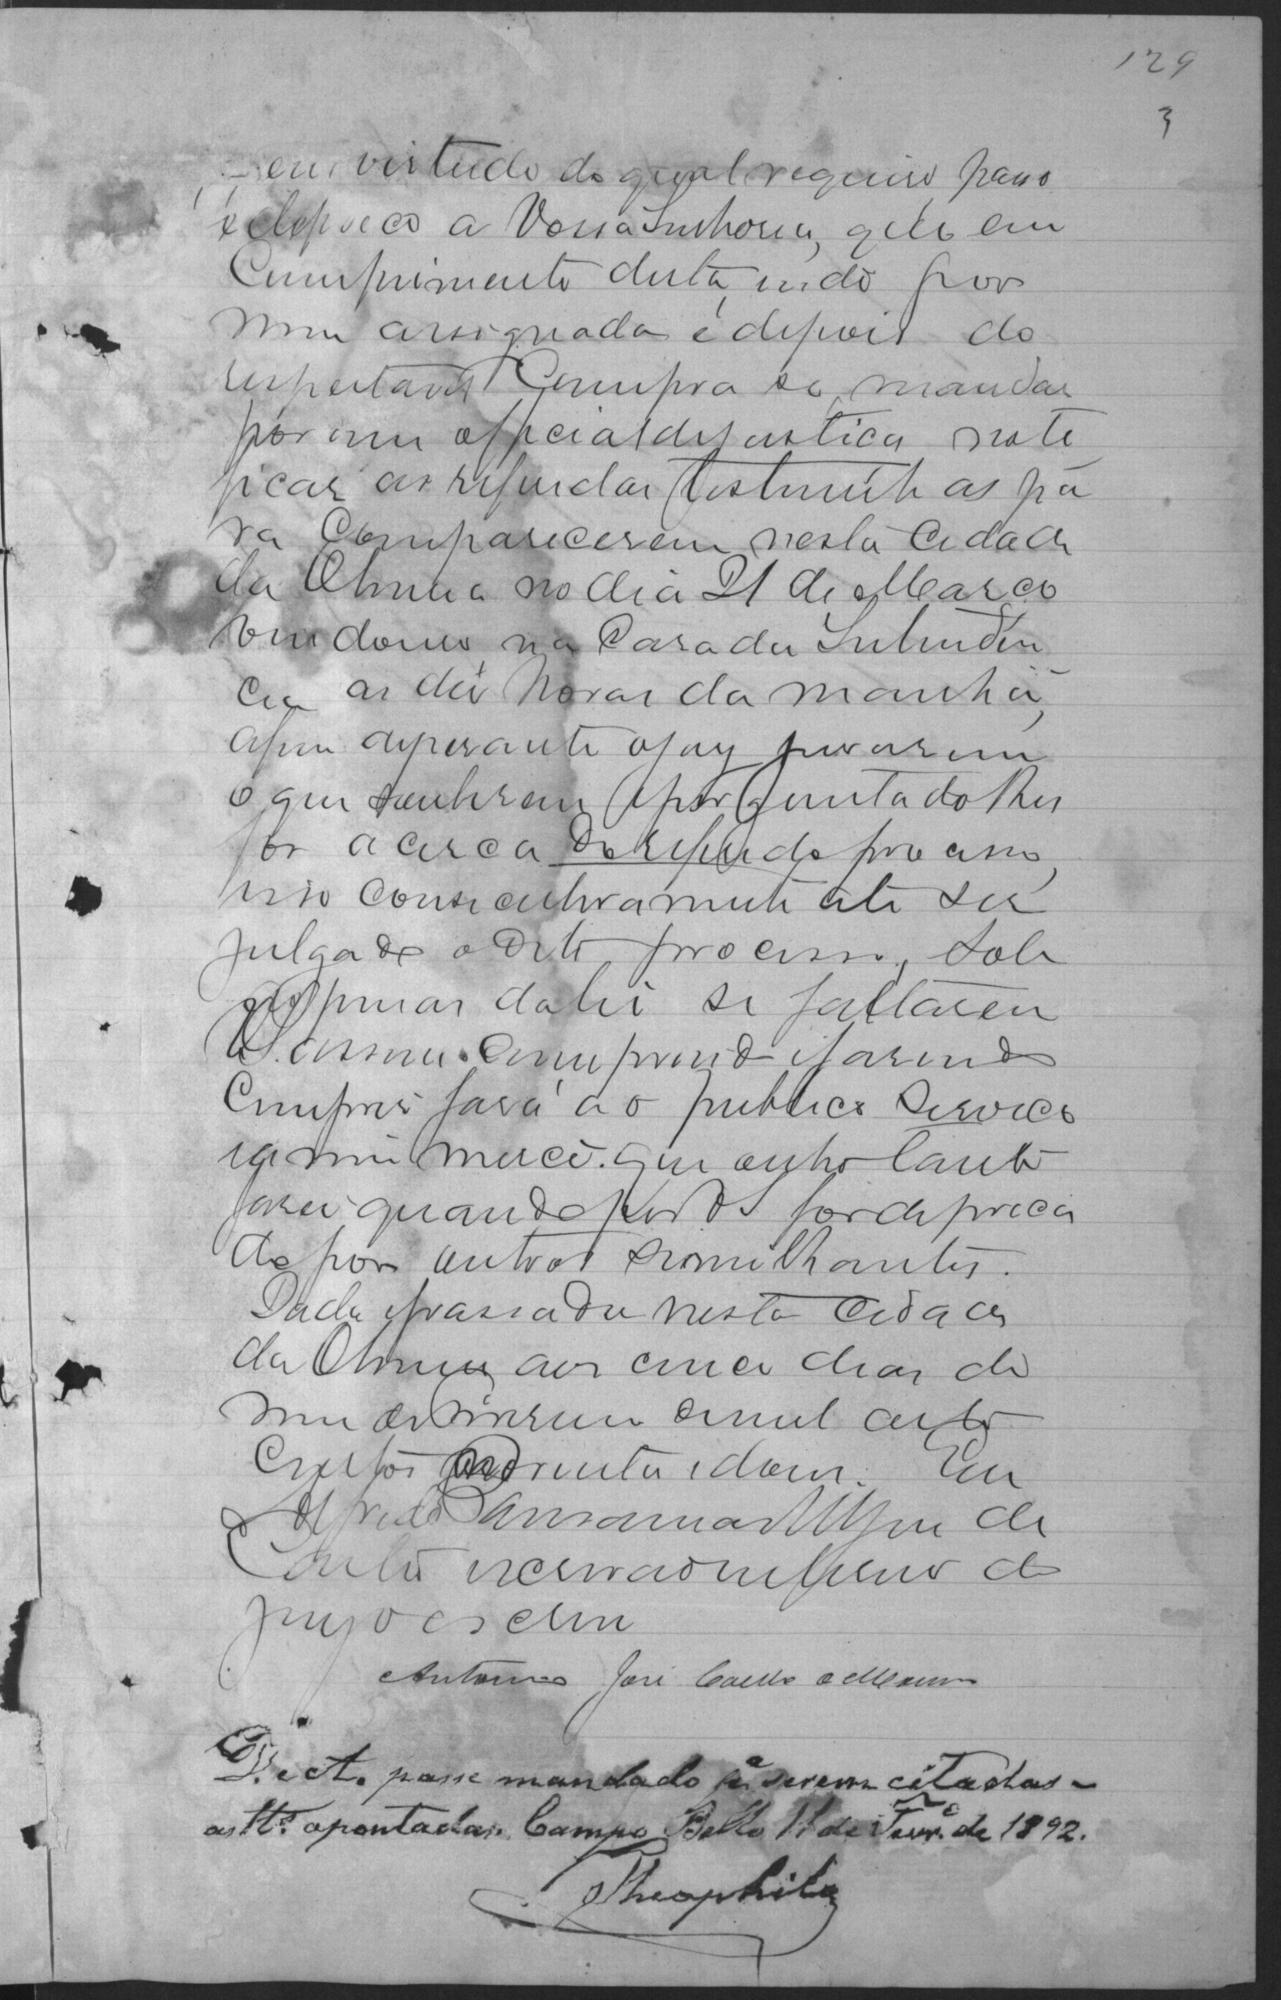 129
3
em virtude do qual requeiro, passo
e depreco a Vossa Senhoria, que em
Cumprimento desta, indo por
mim assignada e depois do
respeitavel Cumpra se, mandar
por um official de justiça note
ficar as referidas testimunhas pa
ra Comparecerem nesta Cidade
da Oliveira no dia 21 de Março
vindouro na Casa da Intenden
cia as dez horas da manhã,
afim de perante o jury jurarem
o que souberem e perguntado lhes
for acerca do referido processo,
isso consecutivamente até ser
julgado o dito processo, sob
as penas da lei se faltarem
V.S. assim cumprindo e fasendo
Cumprir fará ao publico serviço
e a mim mercê. que outro tanto
farei quando por V.S. for depreca
do por outras similhantes.
Dada e passada nesta Cidade
da Oliveira aos cinco dias do
mez de Fevereiro de mil oito
Centos noventa e dous. Eu
Alfredo de
Couto escrivão interino do
jury o escrevi
Antonio José Coelho e Moura
D. e A. passe mandado pª serem citadas
as ttªs apontadas. Campo Bello 11 de Fevrº de 1892.
Theophilo